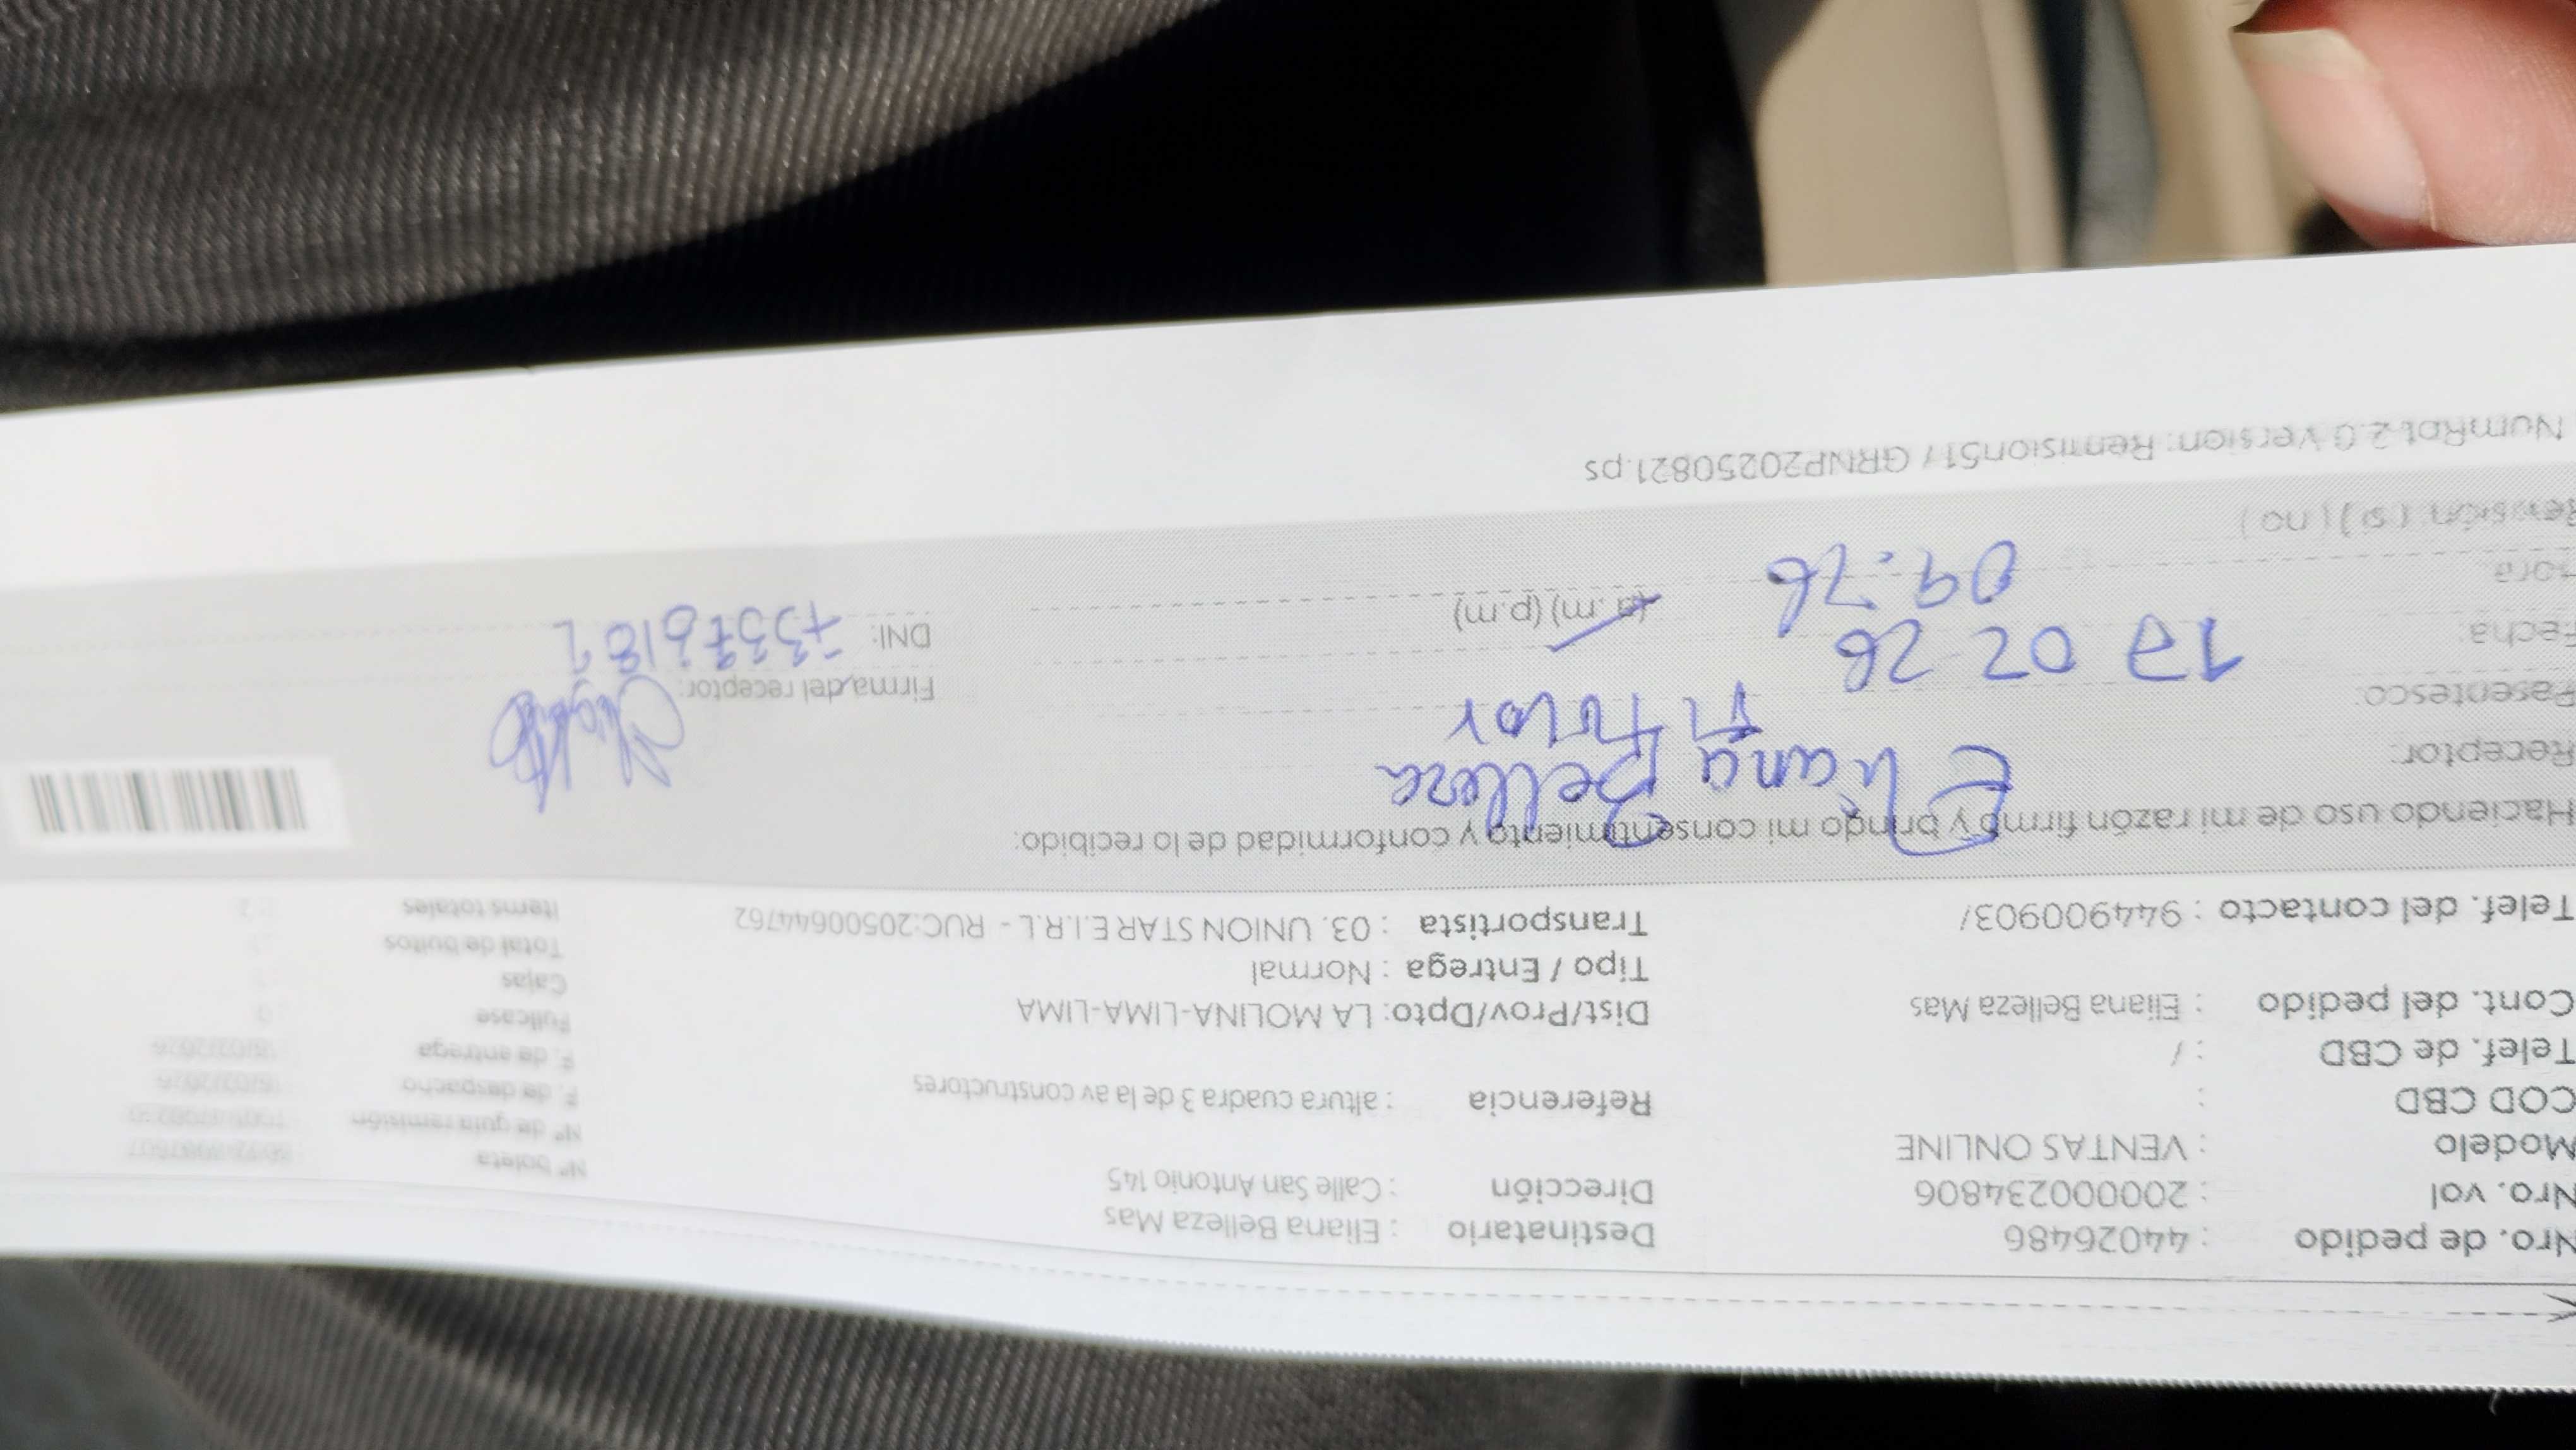 Nro. de pedido : 44026486
Nro. vol : 200000234806
Modelo : VENTAS ONLINE
COD CBD :
Telef. de CBD : /
Cont. del pedido : Eliana Belleza Mas
Telef. del contacto : 944900903/
Destinatario : Eliana Belleza Mas
Dirección : Calle San Antonio 145
Referencia : altura cuadra 3 de la av constructores
Dist/Prov/Dpto: LA MOLINA-LIMA-LIMA
Tipo / Entrega : Normal
Transportista : 03. UNION STAR E.I.R.L - RUC:20500644762
Nº boleta
Nº de guía remisión
F. de despacho
F. de entrega
Fullcase
Cajas
Total de bultos
Items totales
Haciendo uso de mi razón firmo y brindo mi consentimiento y conformidad de lo recibido:
Receptor: Eliana Belleza
Parentesco: Titular
Fecha: 17 02 26
Hora 09:26 (a.m) (p.m)
Revisión (si) (no)
Firma del receptor:
DNI: 73376182
NumRpt 2.0 Version: Remision51 / GRNP20250821.ps